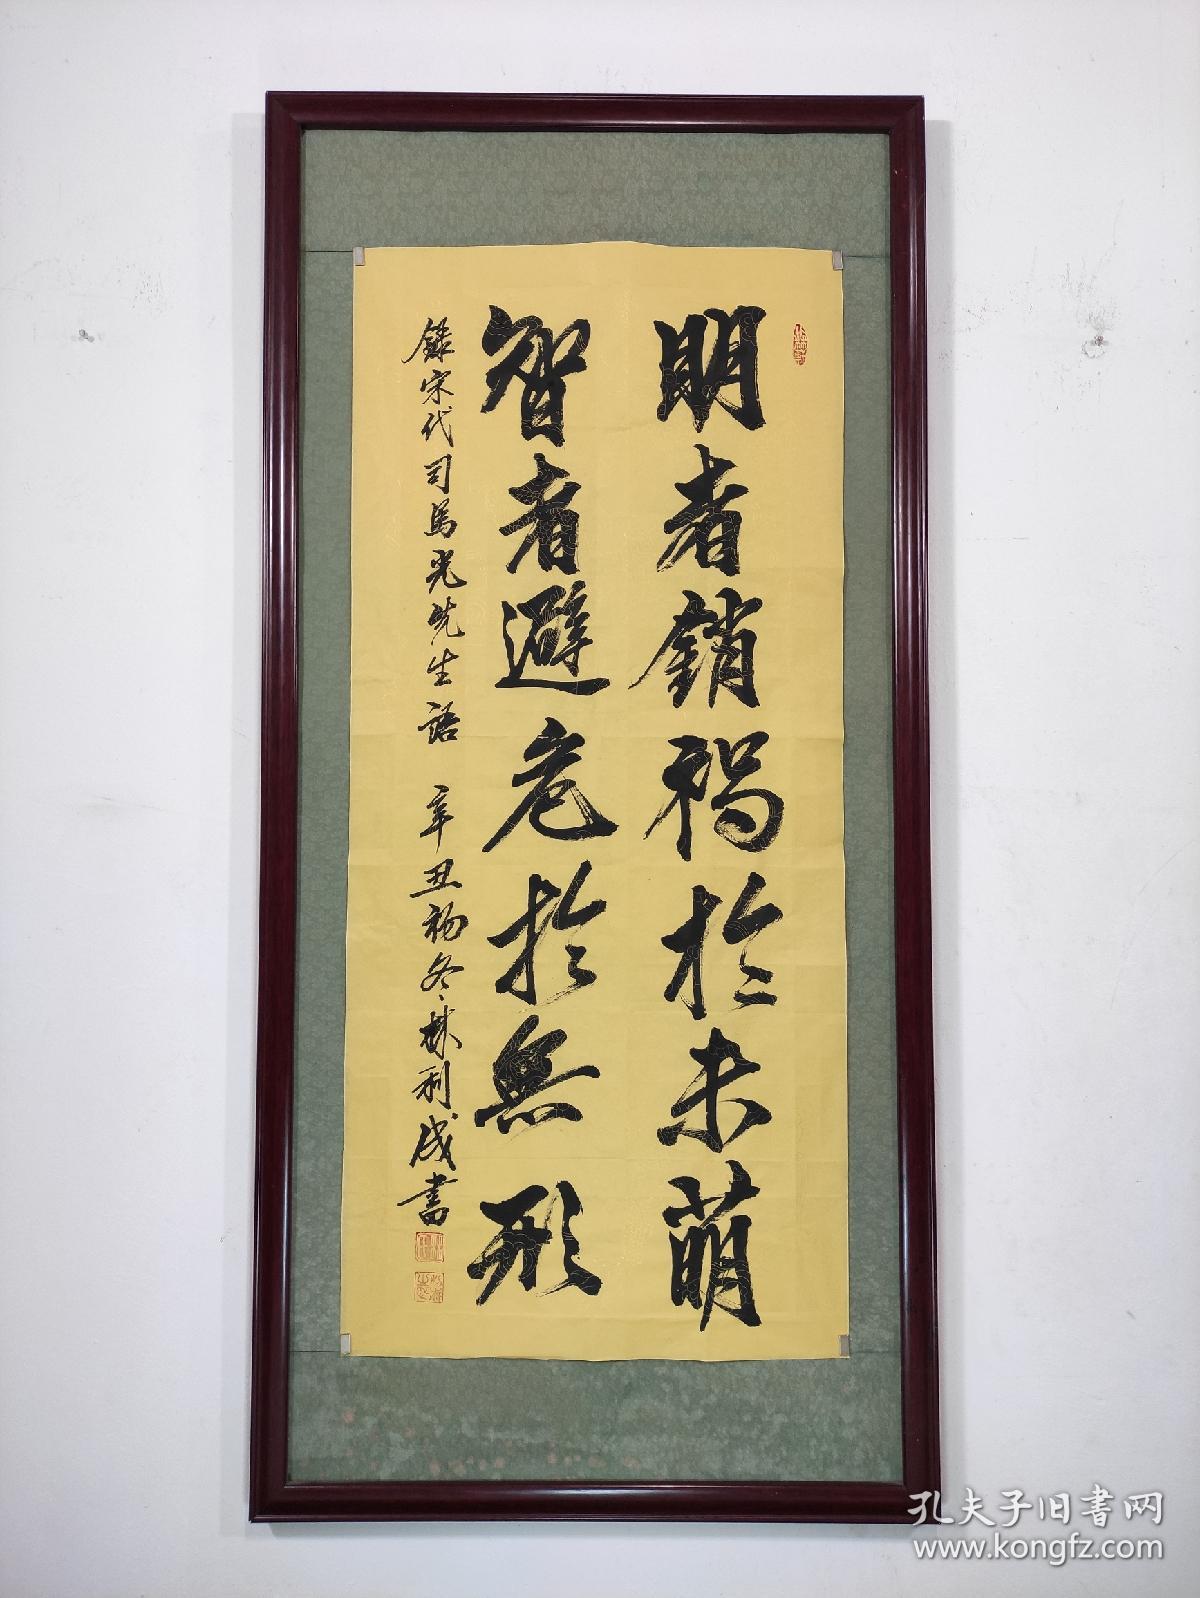 明者銷祸於未萌
智者避危於無形
録宋代司馬光先生語 辛丑初冬林利成書
孔夫子旧书网
www.kongfz.com